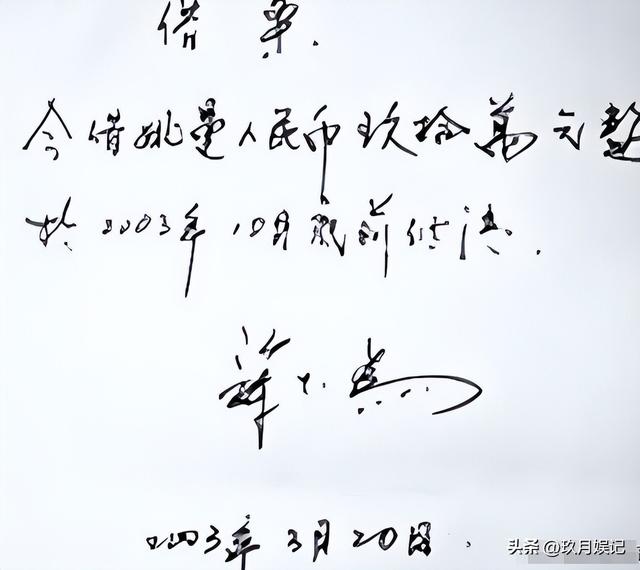 借
今借姚曼人民币玖拾萬元整
於2003年10月底前付清.
2003年3月20日.
头条 @玖月娱记